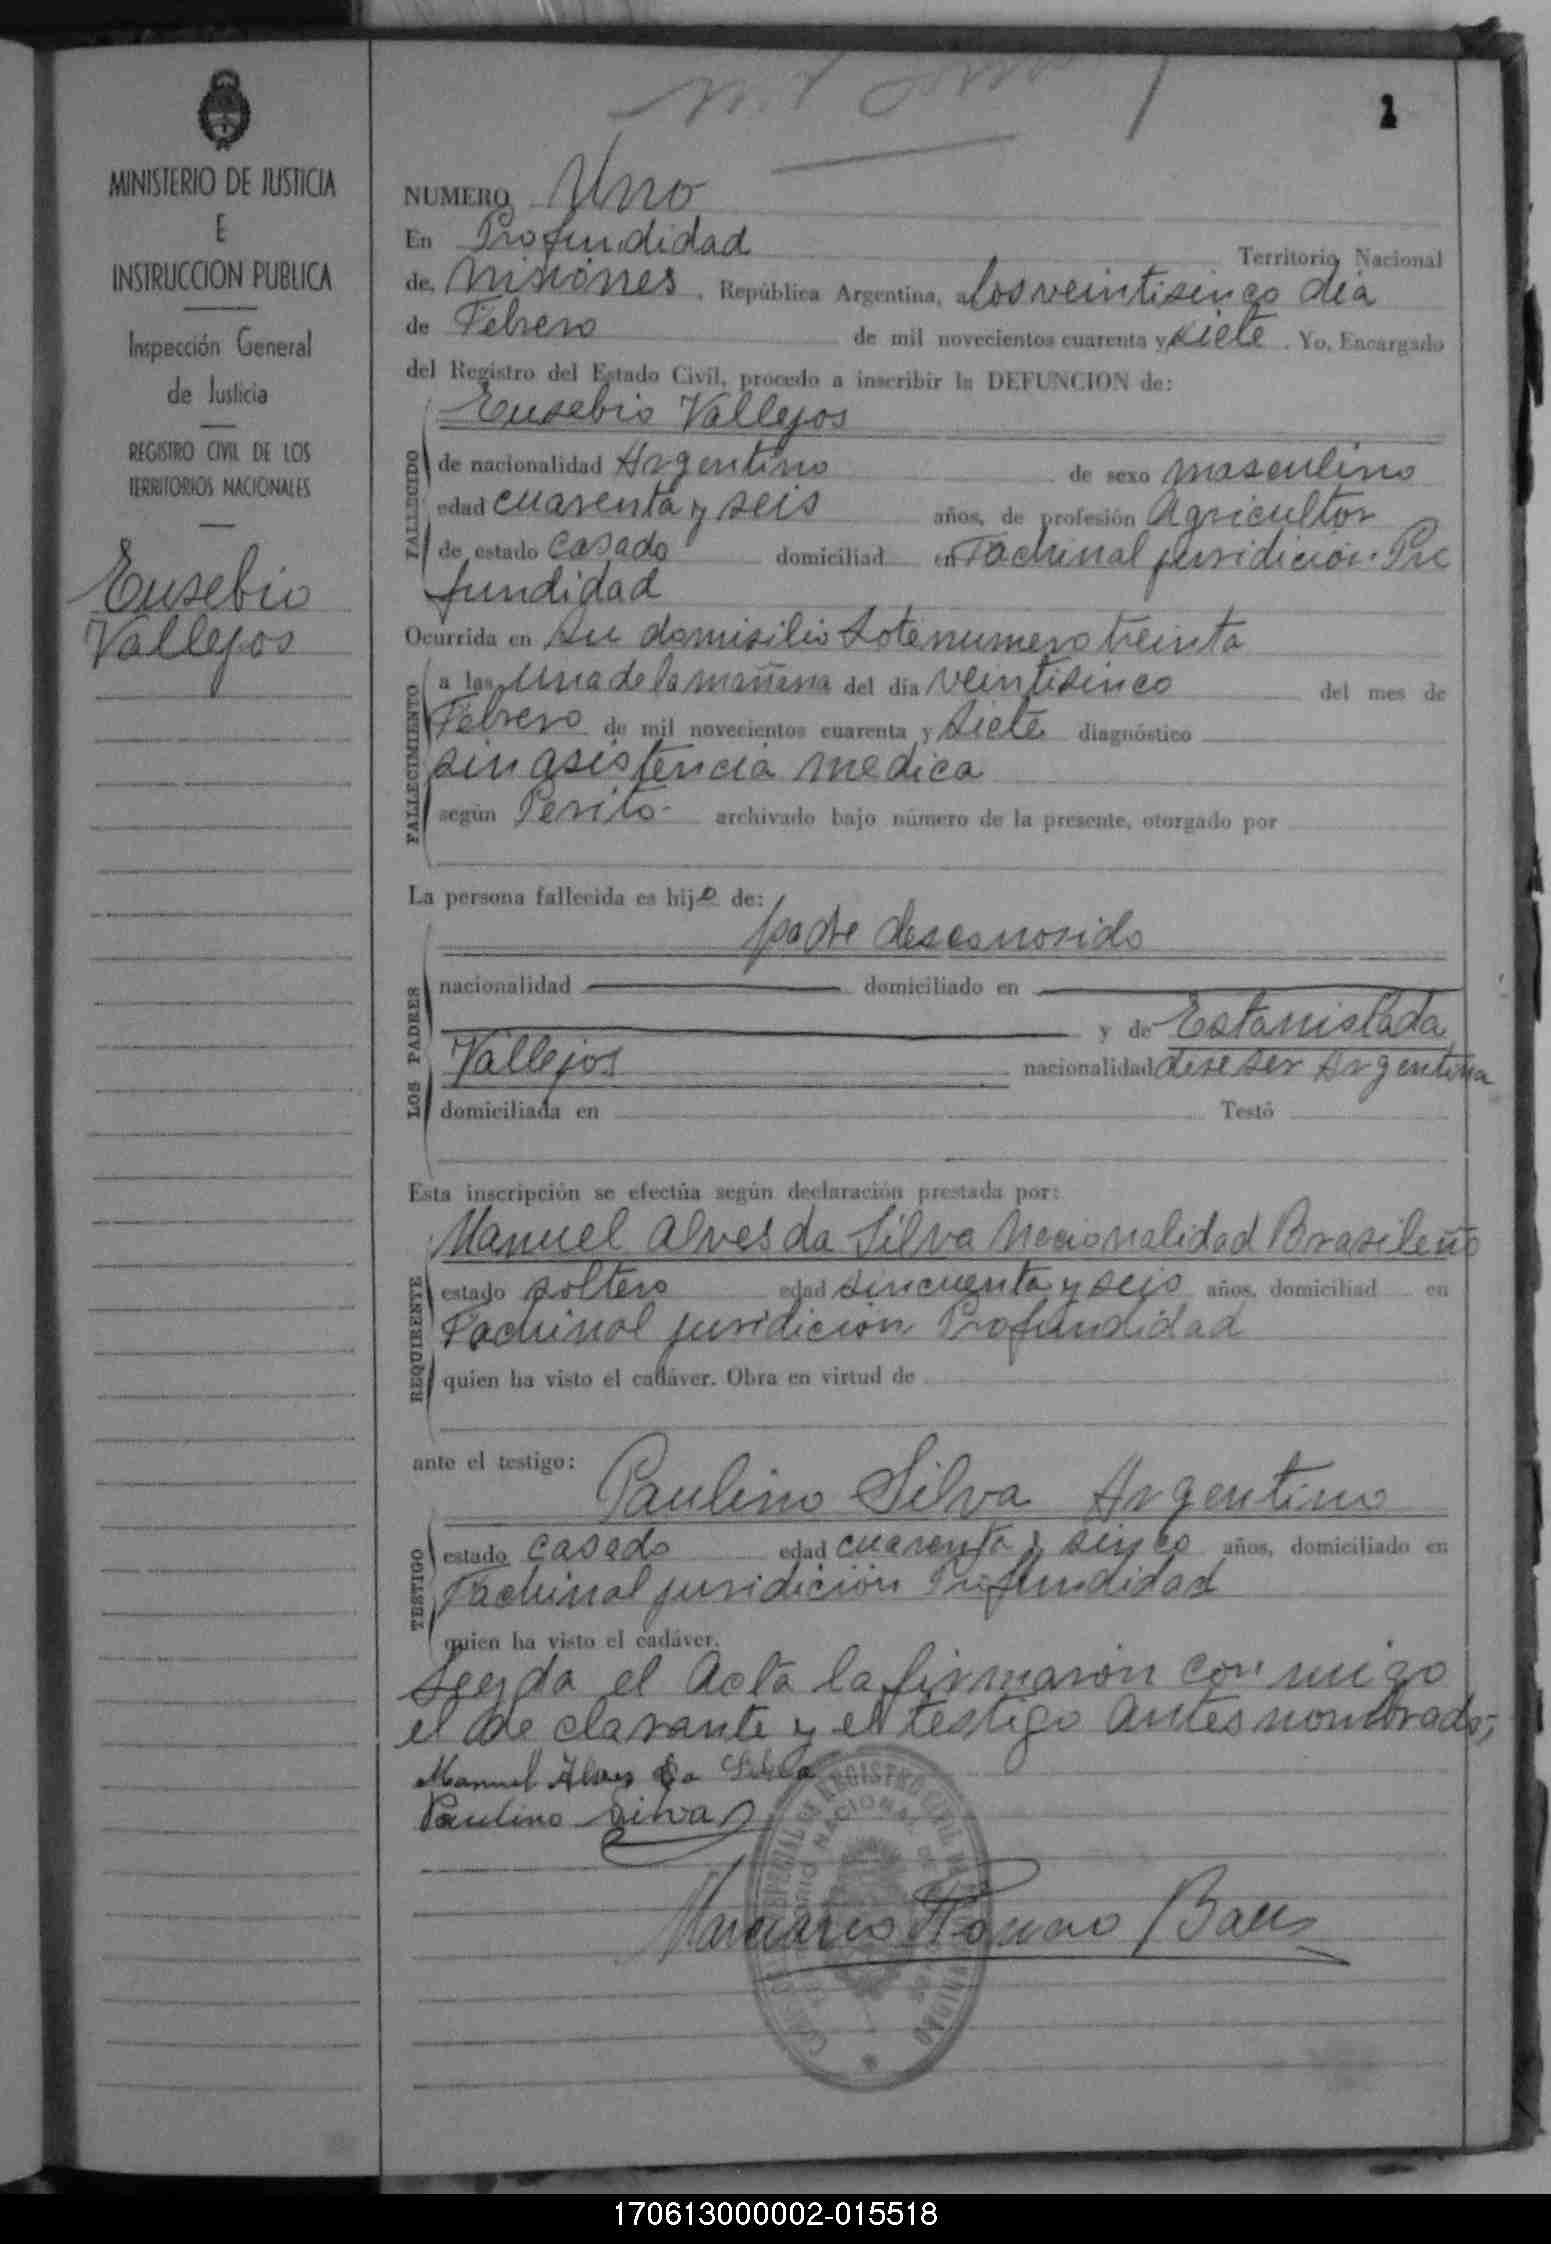 1
MINISTERIO DE JUSTICIA
E
INSTRUCCION PUBLICA
Inspección General
de Justicia
REGISTRO CIVIL DE LOS
TERRITORIOS NACIONALES
Eusebio
Vallejos
NUMERO Uno
En Profundidad Territorio Nacional
de Misiones, República Argentina, a los veintisinco dia
de Febrero de mil novecientos cuarenta y siete. Yo, Encargado
del Registro del Estado Civil, procedo a inscribir la DEFUNCION de:
Eusebio Vallejos
FALLECIDO
de nacionalidad Argentino de sexo masculino
edad cuarenta y seis años, de profesión Agricultor
de estado casado domiciliad en Fachinal juridición Pro
fundidad
Ocurrida en su domisilio Lote numero treinta
FALLECIMIENTO
a las una de la mañana del día veintisinco del mes de
Febrero de mil novecientos cuarenta y siete diagnóstico
sin asistencia medica
según Perito- archivado bajo número de la presente, otorgado por
La persona fallecida es hijo de:
LOS PADRES
padre desconosido
nacionalidad domiciliado en
y de Estanislada
Vallejos nacionalidad dise ser Argentina
domiciliada en Testó
Esta inscripción se efectúa según declaración prestada por:
REQUIRENTE
Manuel Alves da Silva nacionalidad Brasileño
estado soltero edad sincuenta y seis años, domiciliad en
Fachinal juridición Profundidad
quien ha visto el cadáver. Obra en virtud de
ante el testigo:
TESTIGO
Paulino Silva Argentino
estado casado edad cuarenta y sinco años, domiciliado en
Fachinal juridición Profundidad
quien ha visto el cadáver.
Leyda el Acta la firmaron con migo
el de clarante y el testigo Antes nombrado;
Manuel Alves da Silva
Paulino Silva
Baez
170613000002-015518